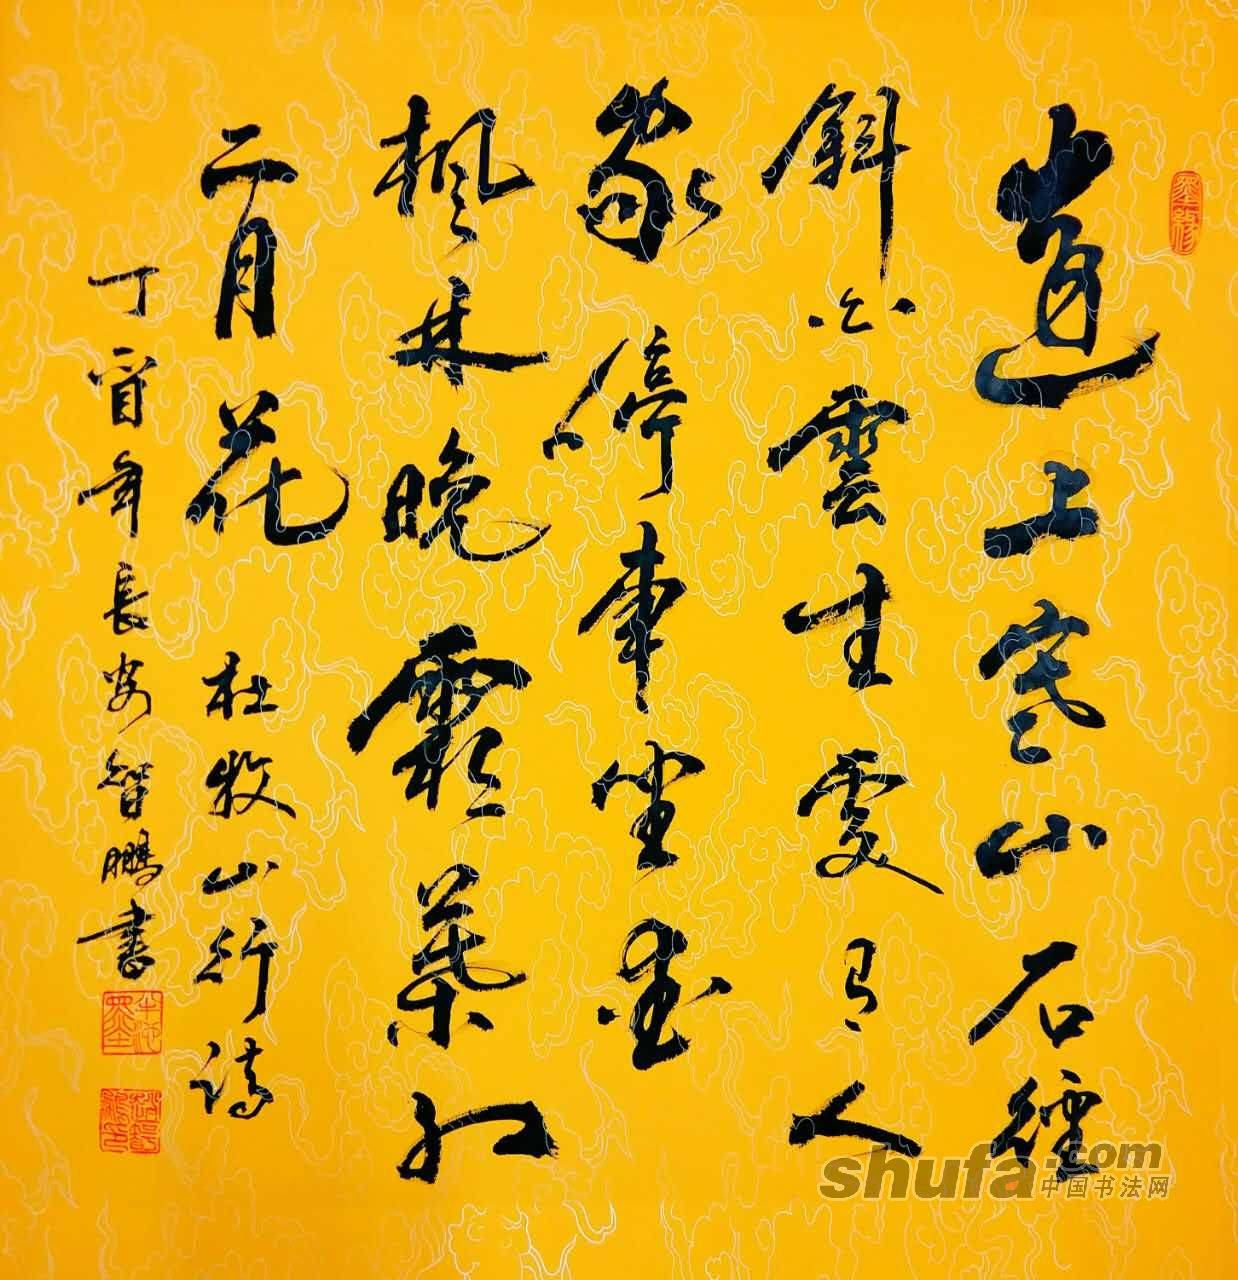 遠上寒山石徑
斜白雲生處有人
家停車坐愛
楓林晚霜葉紅
二月花 杜牧山行詩
丁酉年長安智鵬書
墨缘
shufa.com
中国书法网